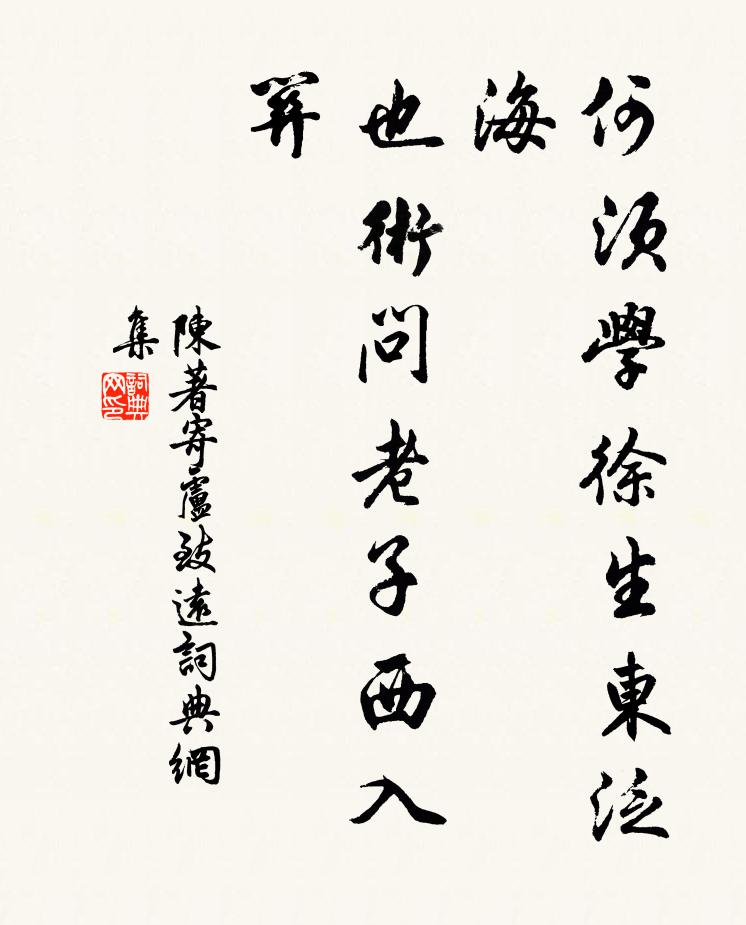 何須學徐生東泛
海
也術問老子西入
關
陳著寄盧致遠詞典網
集
詞典
网印